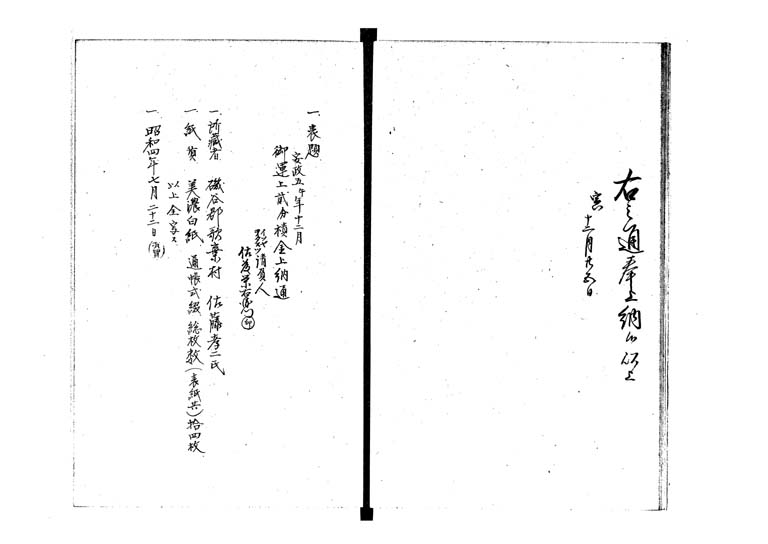 右之通奉上納候以上
寅十二月廿五日
一、表題
安政五午年十二月
御運上貳分積金上納通
請負人
佐藤栄右衛門㊞
一、所藏者 磯谷郡歌棄村 佐藤孝二氏
一、紙質 美濃白紙 通帳式綴 総枚数(表紙共)拾四枚
以上全寫ス
一、昭和四年七月二十二日